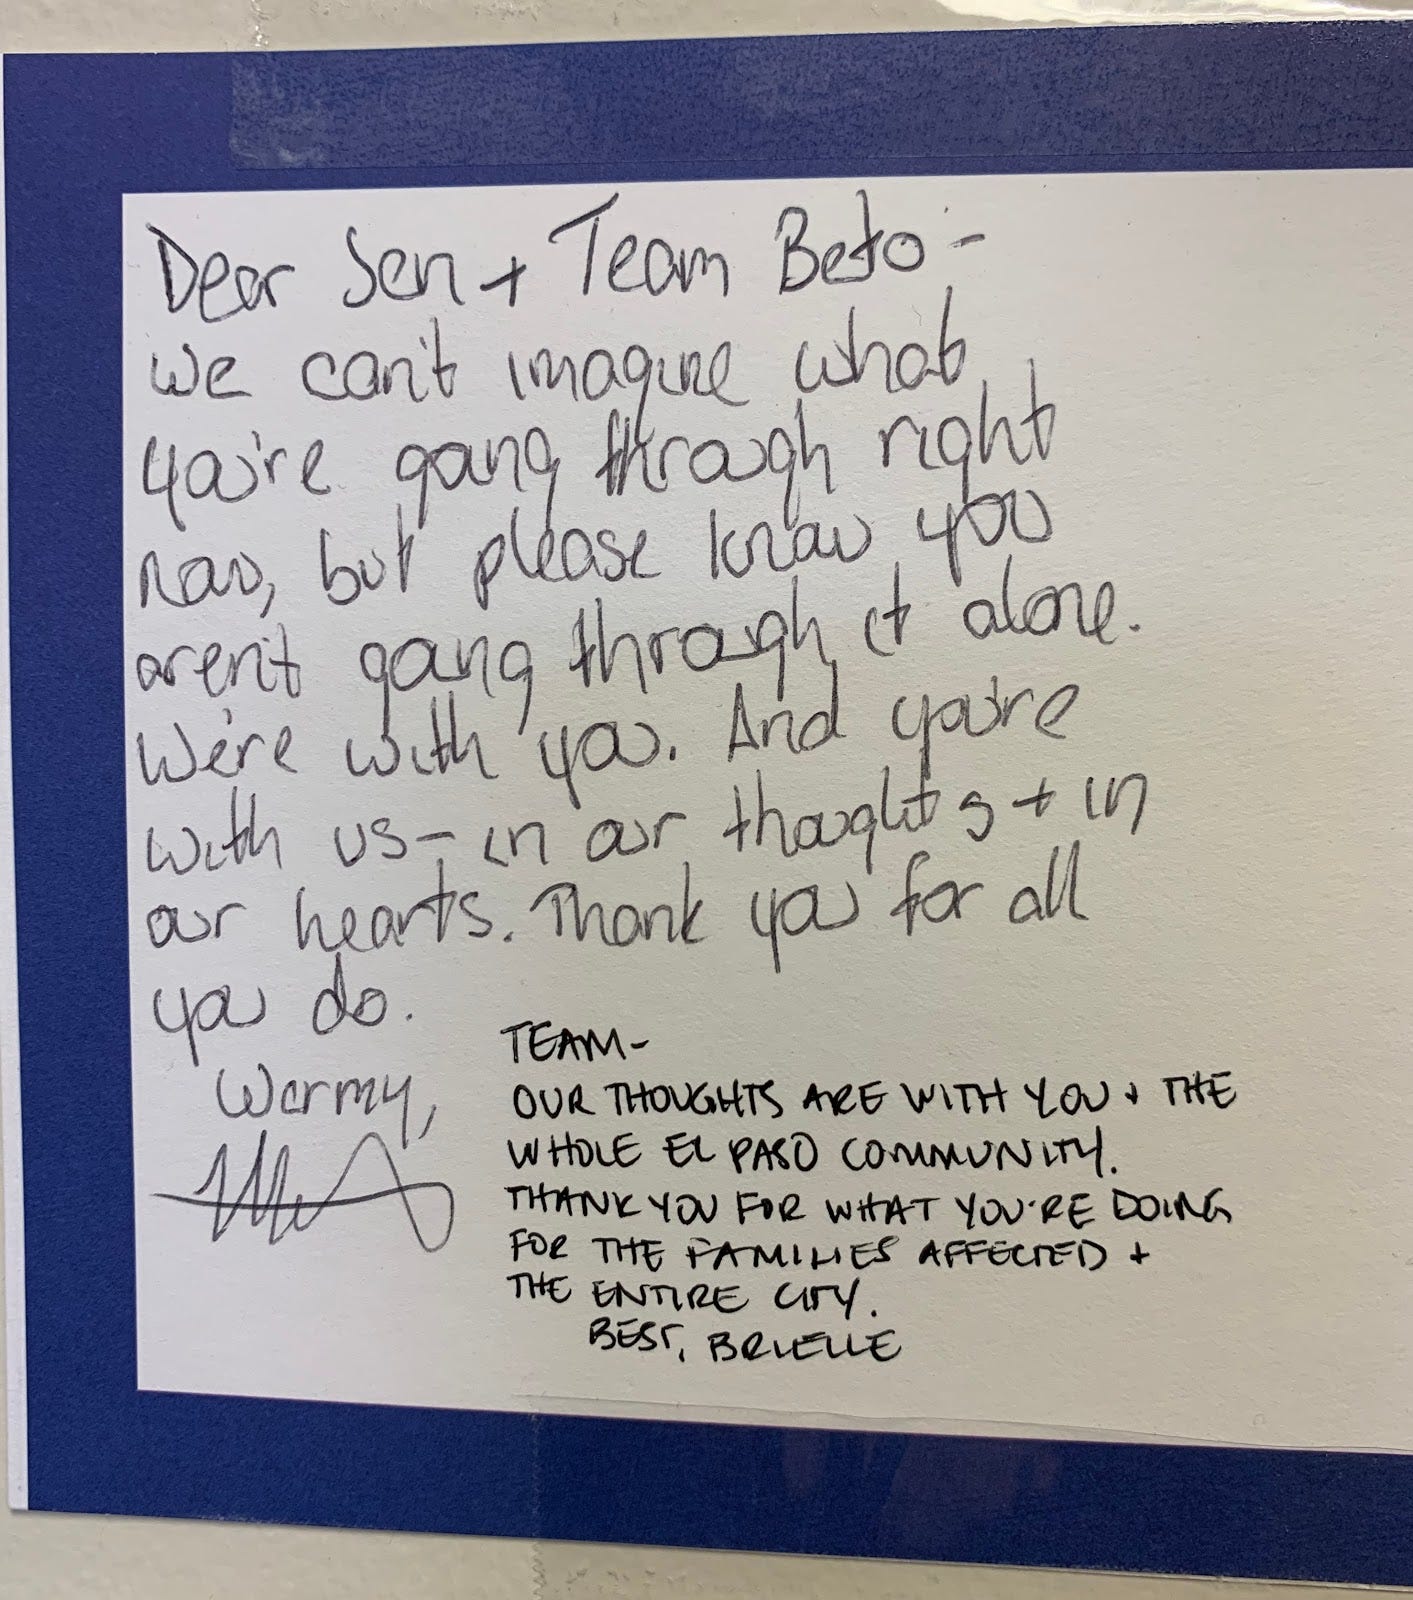 Dear Jen + Team Beto -
We can't imagine what
you're going through right
now, but please know you
aren't going through it alone.
We're with you. And you're
with us - in our thoughts + in
our hearts. Thank you for all
you do.
Warmly,
TEAM-
OUR THOUGHTS ARE WITH YOU + THE
WHOLE EL PASO COMMUNITY.
THANK YOU FOR WHAT YOU'RE DOING
FOR THE FAMILIES AFFECTED +
THE ENTIRE CITY.
BEST, BRIELLE